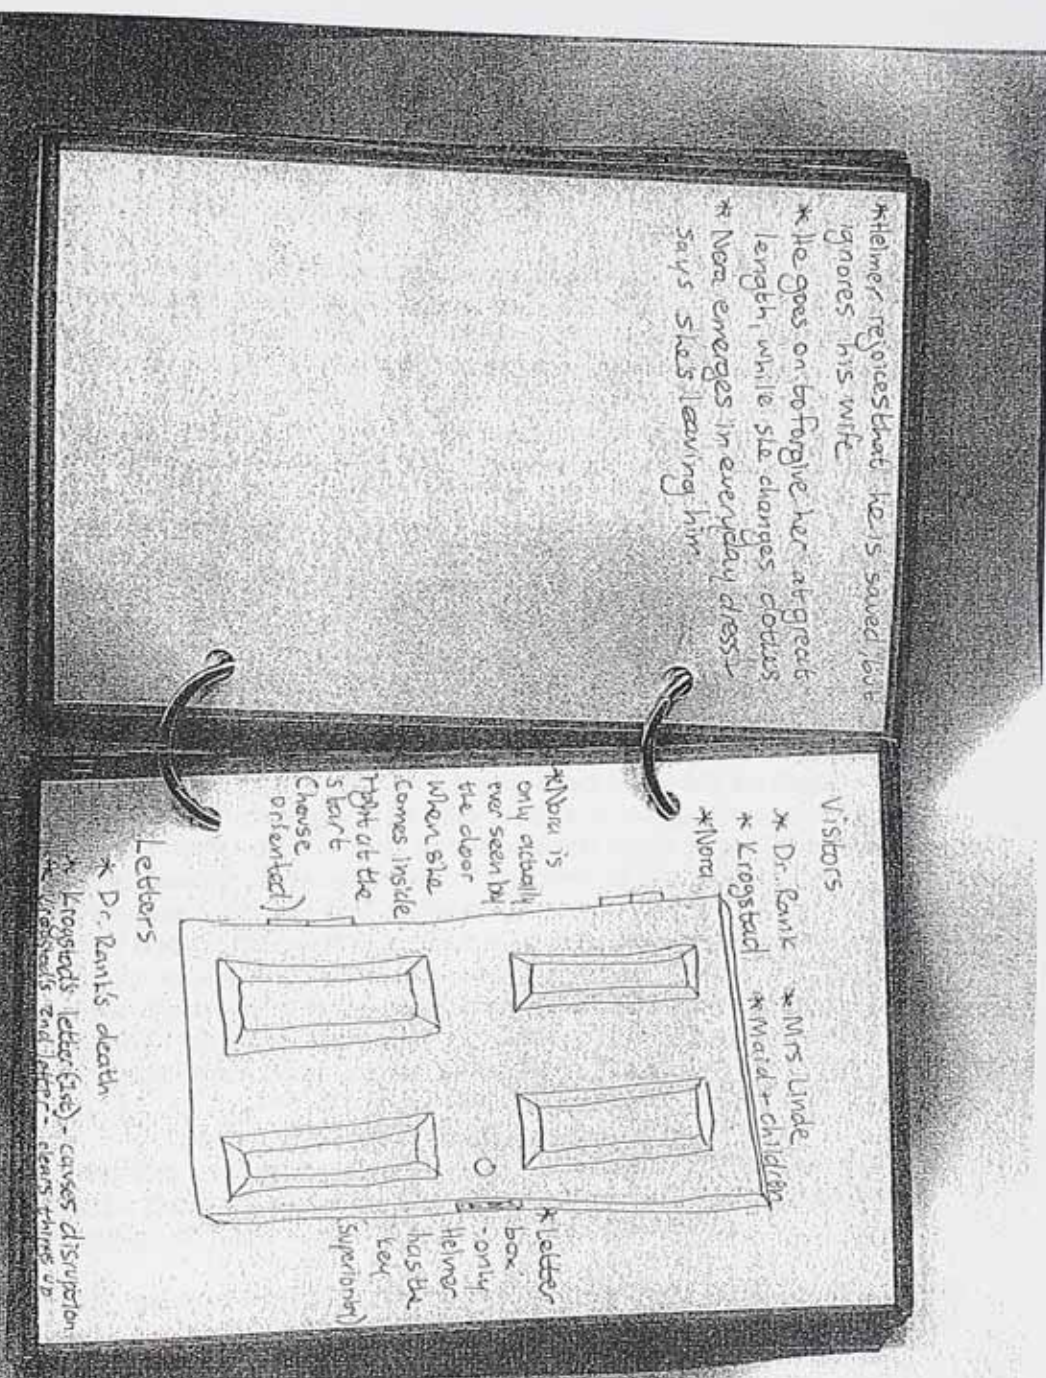 *Helmer rejoices that he is saved, but
ignores his wife
* He goes on to forgive her at great
length, while she changes clothes
* Nora emerges in everyday dress -
says shes leaving him
Visitors
* Dr. Rank * Mrs Linde
* Krogstad * Maid + children
*Nora
*Nora is
only actually
ever seen by
the door
when she
comes inside
right at the
start
(house
oriented)
* Letter
box
- only
Helmer
has the
key
(Superiority)
Letters
* Dr. Rank's death
* Krogstad's letter (1st) - causes disruption
* Krogstad's 2nd letter - clears things up